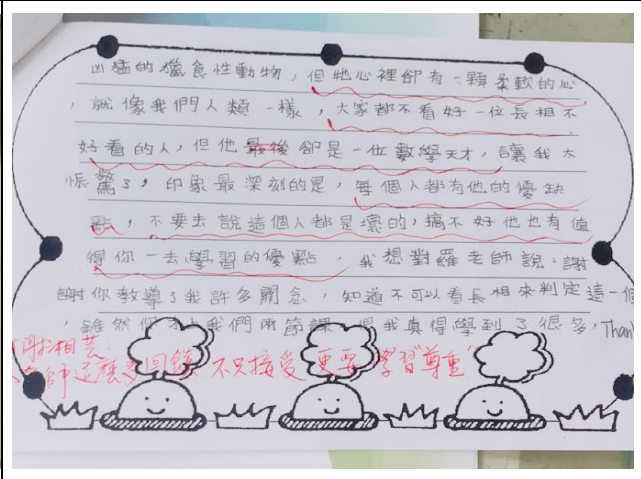 凶猛的獵食性動物，但牠心裡卻有一顆柔軟的心
，就像我們人類一樣，大家都不看好一位長相不
好看的人，但他最後卻是一位數學天才，讓我太
驚了，印象最深刻的是，每個人都有他的優缺
點，不要去說這個人都是壞的，搞不好他也有值
得你一去學習的優點，我想對羅老師說：謝
謝你教導了我許多觀念，知道不可以看長相來判定這一個
，雖然你才上我們兩節課，但我真得學到了很多，Than
相芸：
師這麼多回饋，不只接受更要學習"尊重"